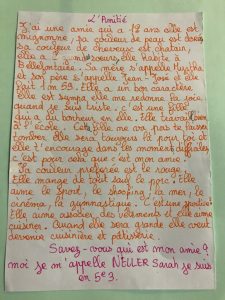 L'Amitié
J'ai une amie qui a 12 ans elle est
mignonne, sa couleur de peau est
sa couleur de cheveux est chatain,
elle a soeurs, elle habite à
Bellefontaine. Sa mère s'appelle
et son père s'appelle Jean-José et elle
fait 1m59. Elle a un bon caractère
Elle est sympa elle me redonne la joie
quand je suis triste, c'est une fille
qui a du bonheur en elle. Elle travail
à l'école, Cette fille ne ara pas te laisser
tomber elle sera toujours là pour toi et
elle t'encourage dans les moments difficiles
c'est pour cela que c'est mon amie.
Sa couleur préférée est le rouge.
Elle mange de tout sauf le porc. Elle
aime le sport, le shopping, la mer, le
cinéma, la gymnastique. C'est une sportive
Elle aime associer des vêtements et elle aime
cuisiner. Quand elle sera grande elle veut
devenir cuisinière et pâtissière.
Savez-vous qui est mon amie?
moi je m'appelle NELLER Sarah je suis
en 5e3.